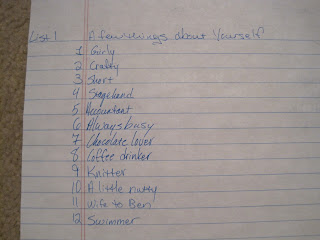 List 1 A few things about Yourself
1 Girly
2 Crafty
3 Short
4 Stagehand
5 Accountant
6 Always busy
7 Chocolate lover
8 Coffee drinker
9 Knitter
10 A little nutty
11 Wife to Ben
12 Swimmer